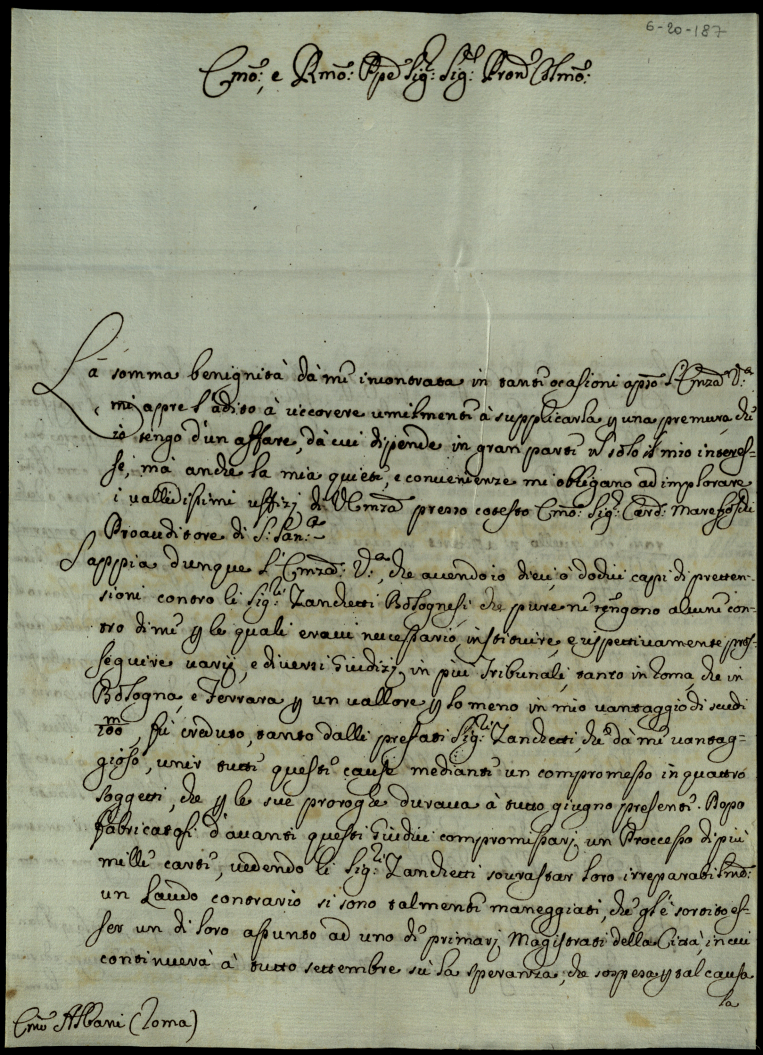 6-20-187
Emo: e Rmo: Ppe Sig: Sig: Pron Colmo:
La somma benignità dà me incontrata in tante ocasioni apso l'Emza Va:
mi apre l'adito à riccorere umilmente à supplicarla p una premura, che
io tengo d'un affare, dà cui dipende in gran parte n solo il mio interes-
se, mà anche la mia quiete, e convenienze mi obligano ad implorare
i vallidissimi uffizj di V Emza presso cotesto Emo: Sig: Card: Mareffoschi
Proauditore di S: San:
Sappia dunque l'Emza: Va:, che avendo io dieci, ò dodici capi di preten-
sioni contro li Sigri: Zanchetti Bolognesi, che pure ne tengono alcune con-
tro di me p le quali eravi necessario instituire, e rispettivamente pros-
seguire varij, e diversi Giudizj, in più Tribunali, tanto in Roma, che in
Bologna, e Ferrara p un vallore p lo meno in mio vantaggio di scudi
100m, fù creduto, tanto dalli prefati Sigri: Zanchetti, che dà me vantag-
gioso, unir tutte queste cause mediante un compromesso in quattro
soggetti, che p le sue proroghe durava à tutto giugno presente. Dopo
fabricatosi d'avanti questi Giudici compromissarj un Proccesso di più
mille carte, vedendo li Sigri: Zanchetti sovrastar loro irreparabilme:
un Laudo contrario si sono talmente maneggiati, che gl'è sortito es-
ser un di loro assunto ad uno de' primarj Magistrati della Città, in cui
continuerà à tutto settembre sù la speranza, che sospesa p tal causa
la
Emo Albani (Roma)